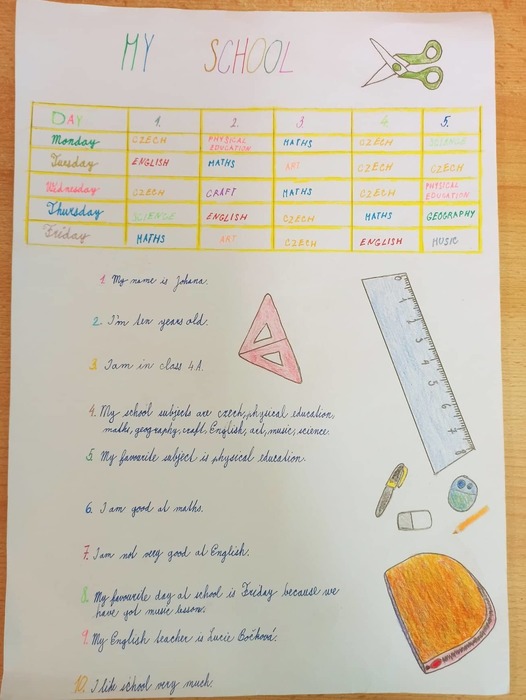 MY SCHOOL
DAY 1. 2. 3. 4. 5.
Monday CZECH PHYSICAL EDUCATION MATHS CZECH SCIENCE
Tuesday ENGLISH MATHS ART CZECH CZECH
Wednesday CZECH CRAFT MATHS CZECH PHYSICAL EDUCATION
Thursday SCIENCE ENGLISH CZECH MATHS GEOGRAPHY
Friday MATHS ART CZECH ENGLISH MUSIC
1. My name is Johana.
2. I'm ten years old.
3. I am in class 4.A.
4. My school subjects are czech, physical education,
maths, geography, craft, English, art, music, science.
5. My favourite subject is physical education.
6. I am good at maths.
7. I am not very good at English.
8. My favourite day at school is Friday because we
have got music lesson.
9. My English teacher is Lucie Bočková.
10. I like school very much.
0 1 2 3 4 5 6 7 8